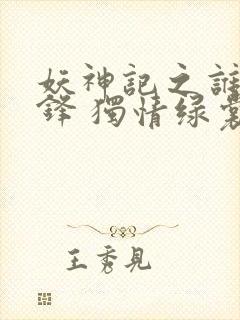 妖神記之
鋒 獨情绿裳
王秀見